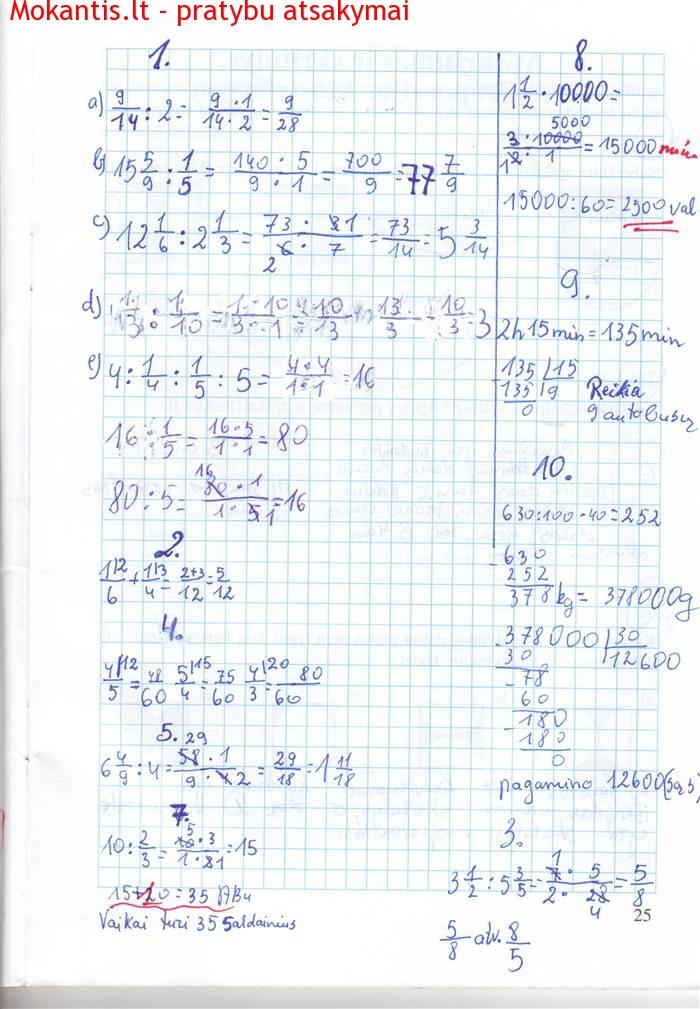 Mokantis.lt - pratybu atsakymai
1.
a) 9/14 : 2 = 9·1/14·2 = 9/28
b) 15 5/9 : 1/5 = 140·5/9·1 = 700/9 = 77 7/9
c) 12 1/6 : 2 1/3 = 73·31/6·7 = 73/14 = 5 3/14
2
d)
e) 4 : 1/4 : 1/5 : 5 = 4·4/1·1 = 16
16 : 1/5 = 16·5/1·1 = 80
16
80 : 5 = 80·1/1·51 = 16
2.
1|2/6 + 1|3/4 = 2+3/12 = 5/12
4.
4|12/5 = 48/60 5|15/4 = 75/60 4|20/3 = 80/60
5. 29
6 4/9 : 4 = 58·1/9·4 2 = 29/18 = 1 11/18
7.
5
10 : 2/3 = 10·3/1·21 = 15
15+20=35
Vaikai turi 35 saldainius
8.
1 1/2 · 10000 =
5000
3·10000/12·1 = 15000 min
15000 : 60 = 2500 val
9.
2h 15min = 135min
135 |15
135 |9 Reikia
0 9 autobusų
10.
630:100·40=252
- 630
252
378kg = 378000g
378000 |30
30 |12600
- 78
60
- 180
180
0
pagamino 12600
3.
1
3 1/2 : 5 3/5 = 7·5/2·28 = 5/8
4
25
5/8 atv. 8/5